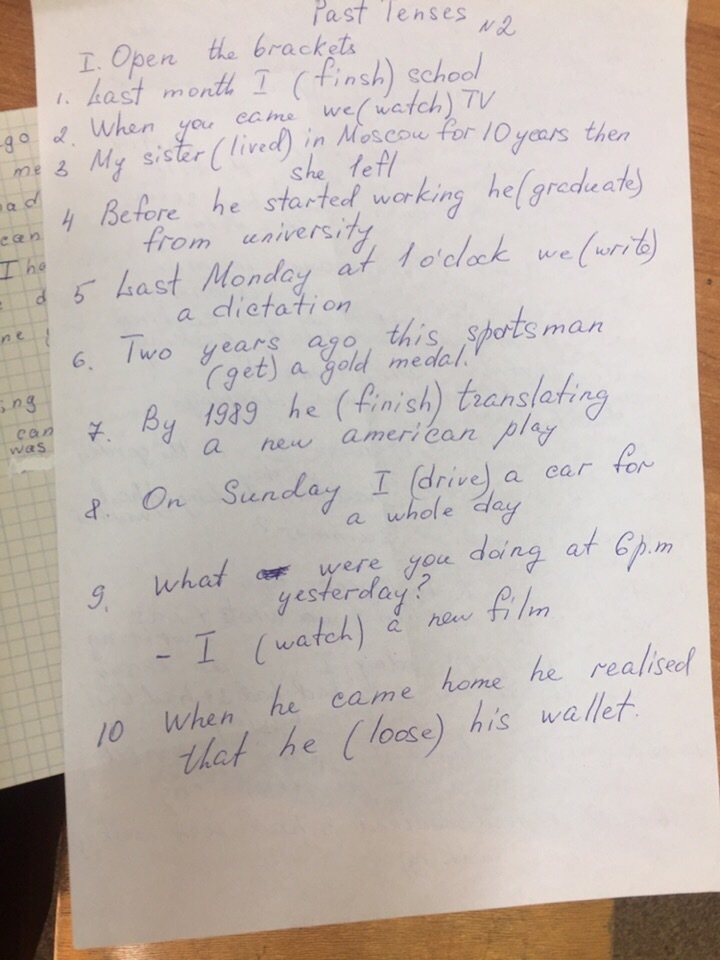 Past Tenses N2
I. Open the brackets
1. Last month I (finsh) school
2. When you came we (watch) TV
3 My sister (lived) in Moscow for 10 years then
she left
4 Before he started working he (graduate)
from university
5 Last Monday at 1 o'clock we (write)
a dictation
6. Two years ago this sportsman
(get) a gold medal.
7. By 1989 he (finish) translating
a new american play
8. On Sunday I (drive) a car for
a whole day
9. What were you doing at 6 p.m
yesterday?
- I (watch) a new film
10 When he came home he realised
that he (loose) his wallet.
go
me
ad
can
I ha
d
ne
ing
can
was